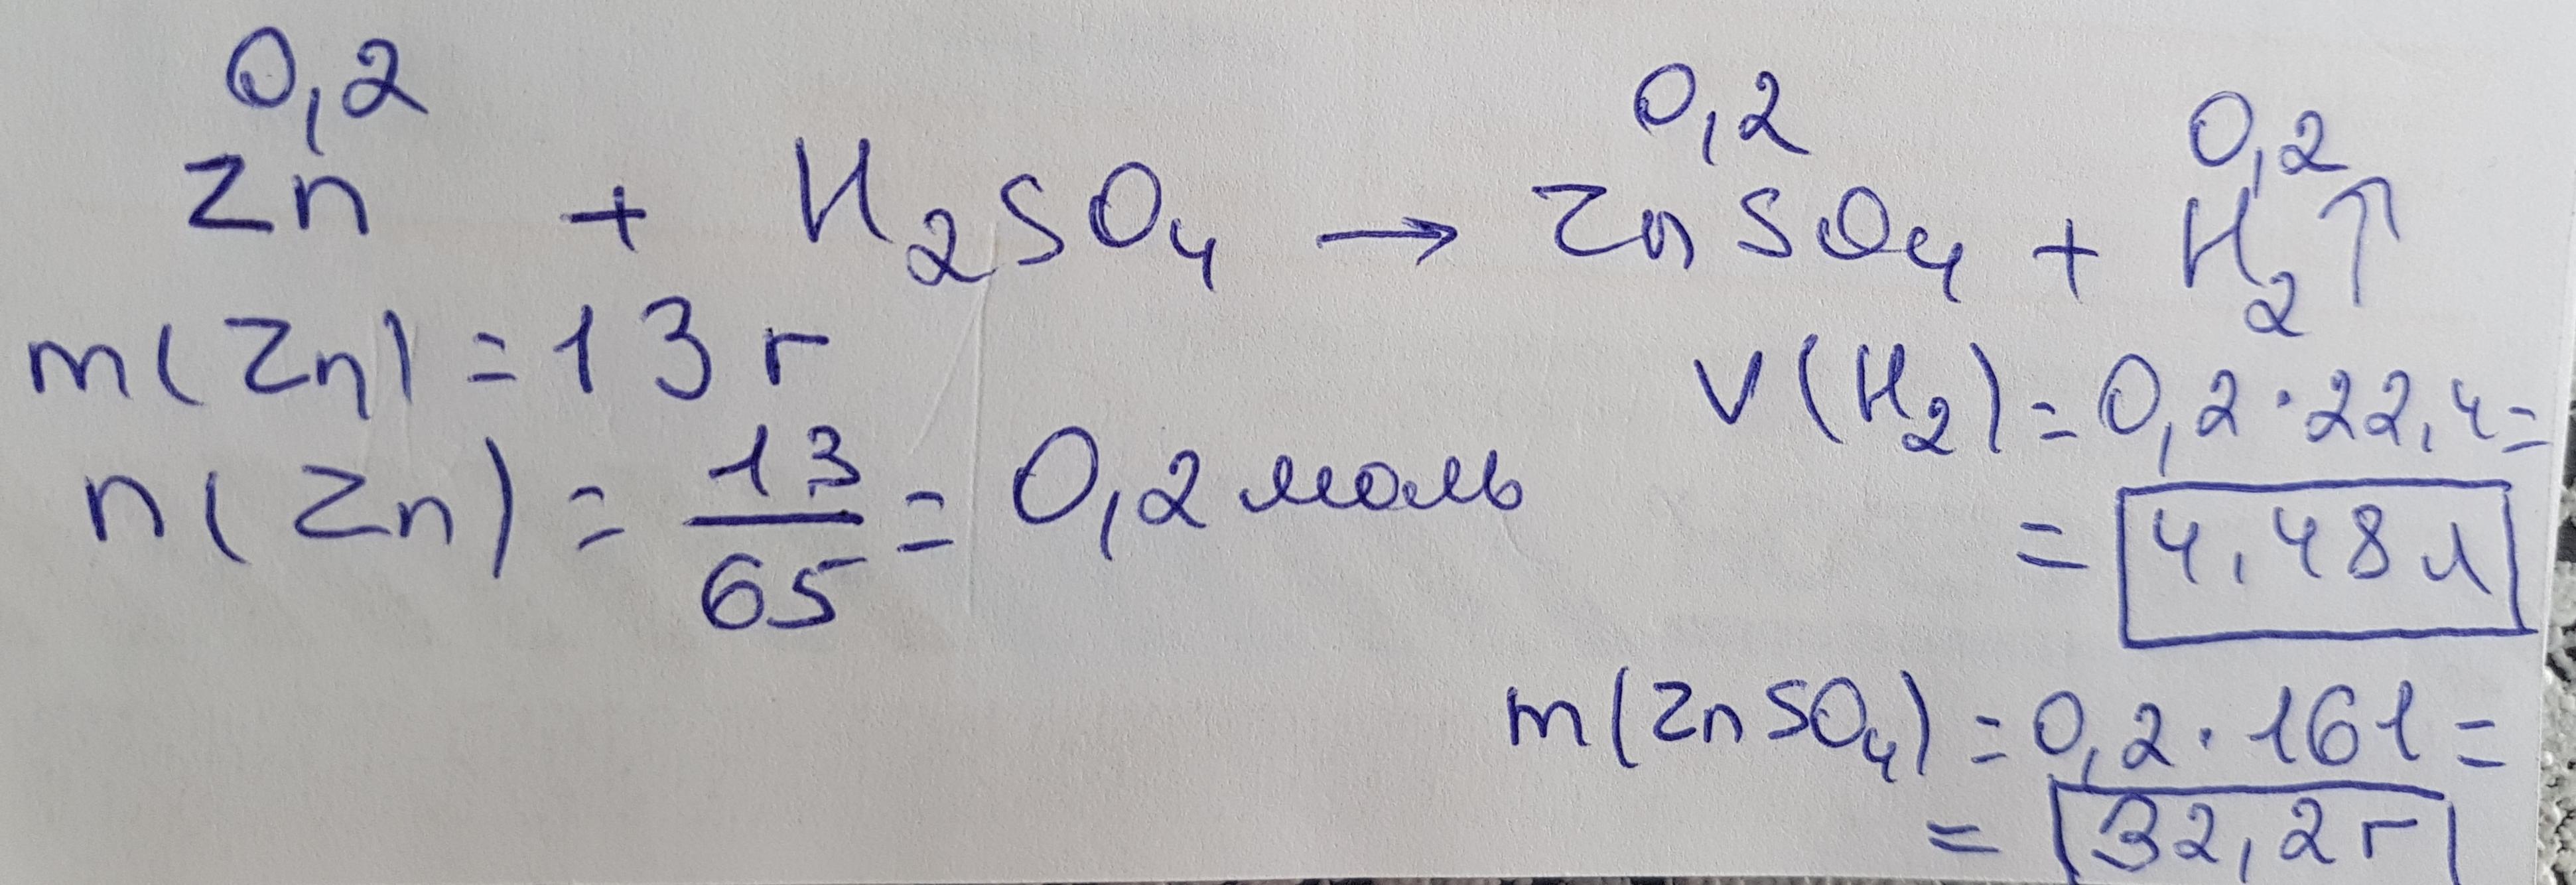 0,2 0,2 0,2
Zn + H₂SO₄ → ZnSO₄ + H₂↑
m(Zn) = 13 г
V(H₂) = 0,2 · 22,4 =
n(Zn) = 13/65 = 0,2 моль
= 4,48 л
m(ZnSO₄) = 0,2 · 161 =
= 32,2 г